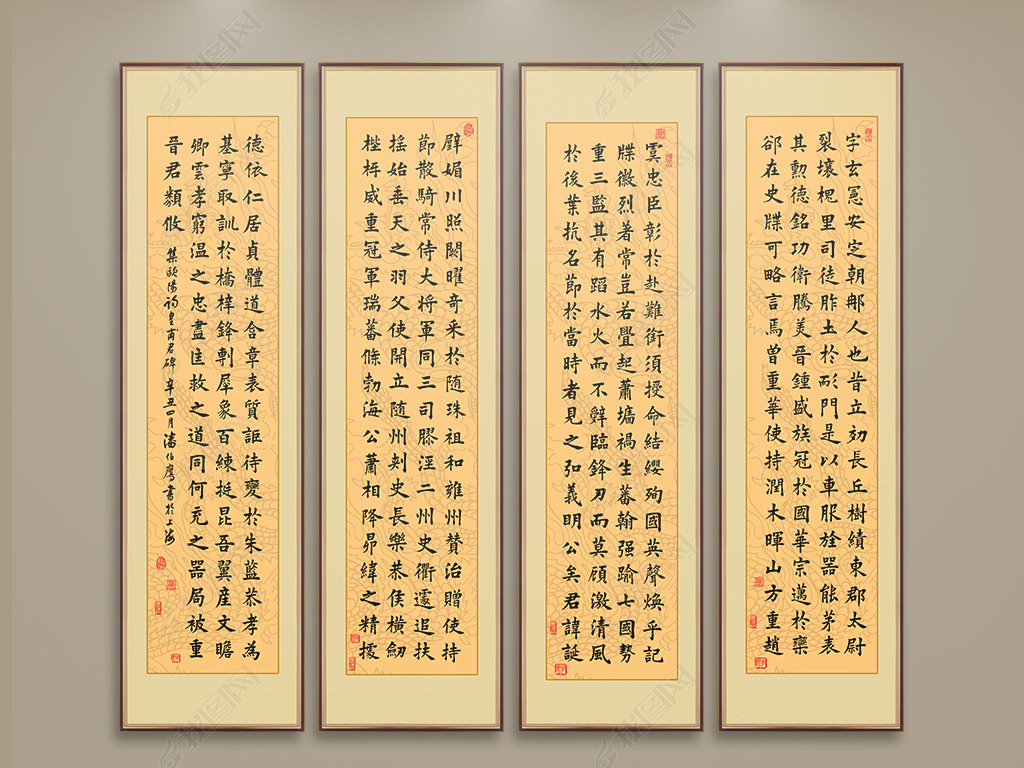 字玄憲安定朝那人也昔立効長丘樹績東郡太尉
裂壤槐里司徒胙土於耏門是以車服旌器能茅表
其勳德銘功衛騰美晉鍾盛族冠於國華宗邁於欒
郤在史牒可略言焉曾重華使持潤木暉山方重趙
虞忠臣彰於赴難銜須授命結纓殉國英聲煥乎記
牒徽烈著常豈若舋起蕭墻禍生蕃翰强踰七國勢
重三監其有蹈水火而不辤臨鋒刃而莫顧激清風
於後業抗名節於當時者見之弘義明公矣君諱誕
璧媚川照闕曜奇采於随珠祖和雍州贊治贈使持
節散騎常侍大将軍同三司膠涇二州史衢遽追扶
摇始垂天之羽父使開立随州刾史長樂恭侯横劒
桎梏威重冠軍瑞蕃條勃海公蕭相降昴緯之精據
德依仁居貞體道含章表質詎待變於朱藍恭孝為
基寧取訓於橋梓鋒剸犀象百練挺昆吾翼産文瞻
卿雲孝窮温之忠盡匡救之道同何充之器局被重
晉君纇攸
集歐陽詢皇甫君碑辛丑四月潘伯鷹書於上海